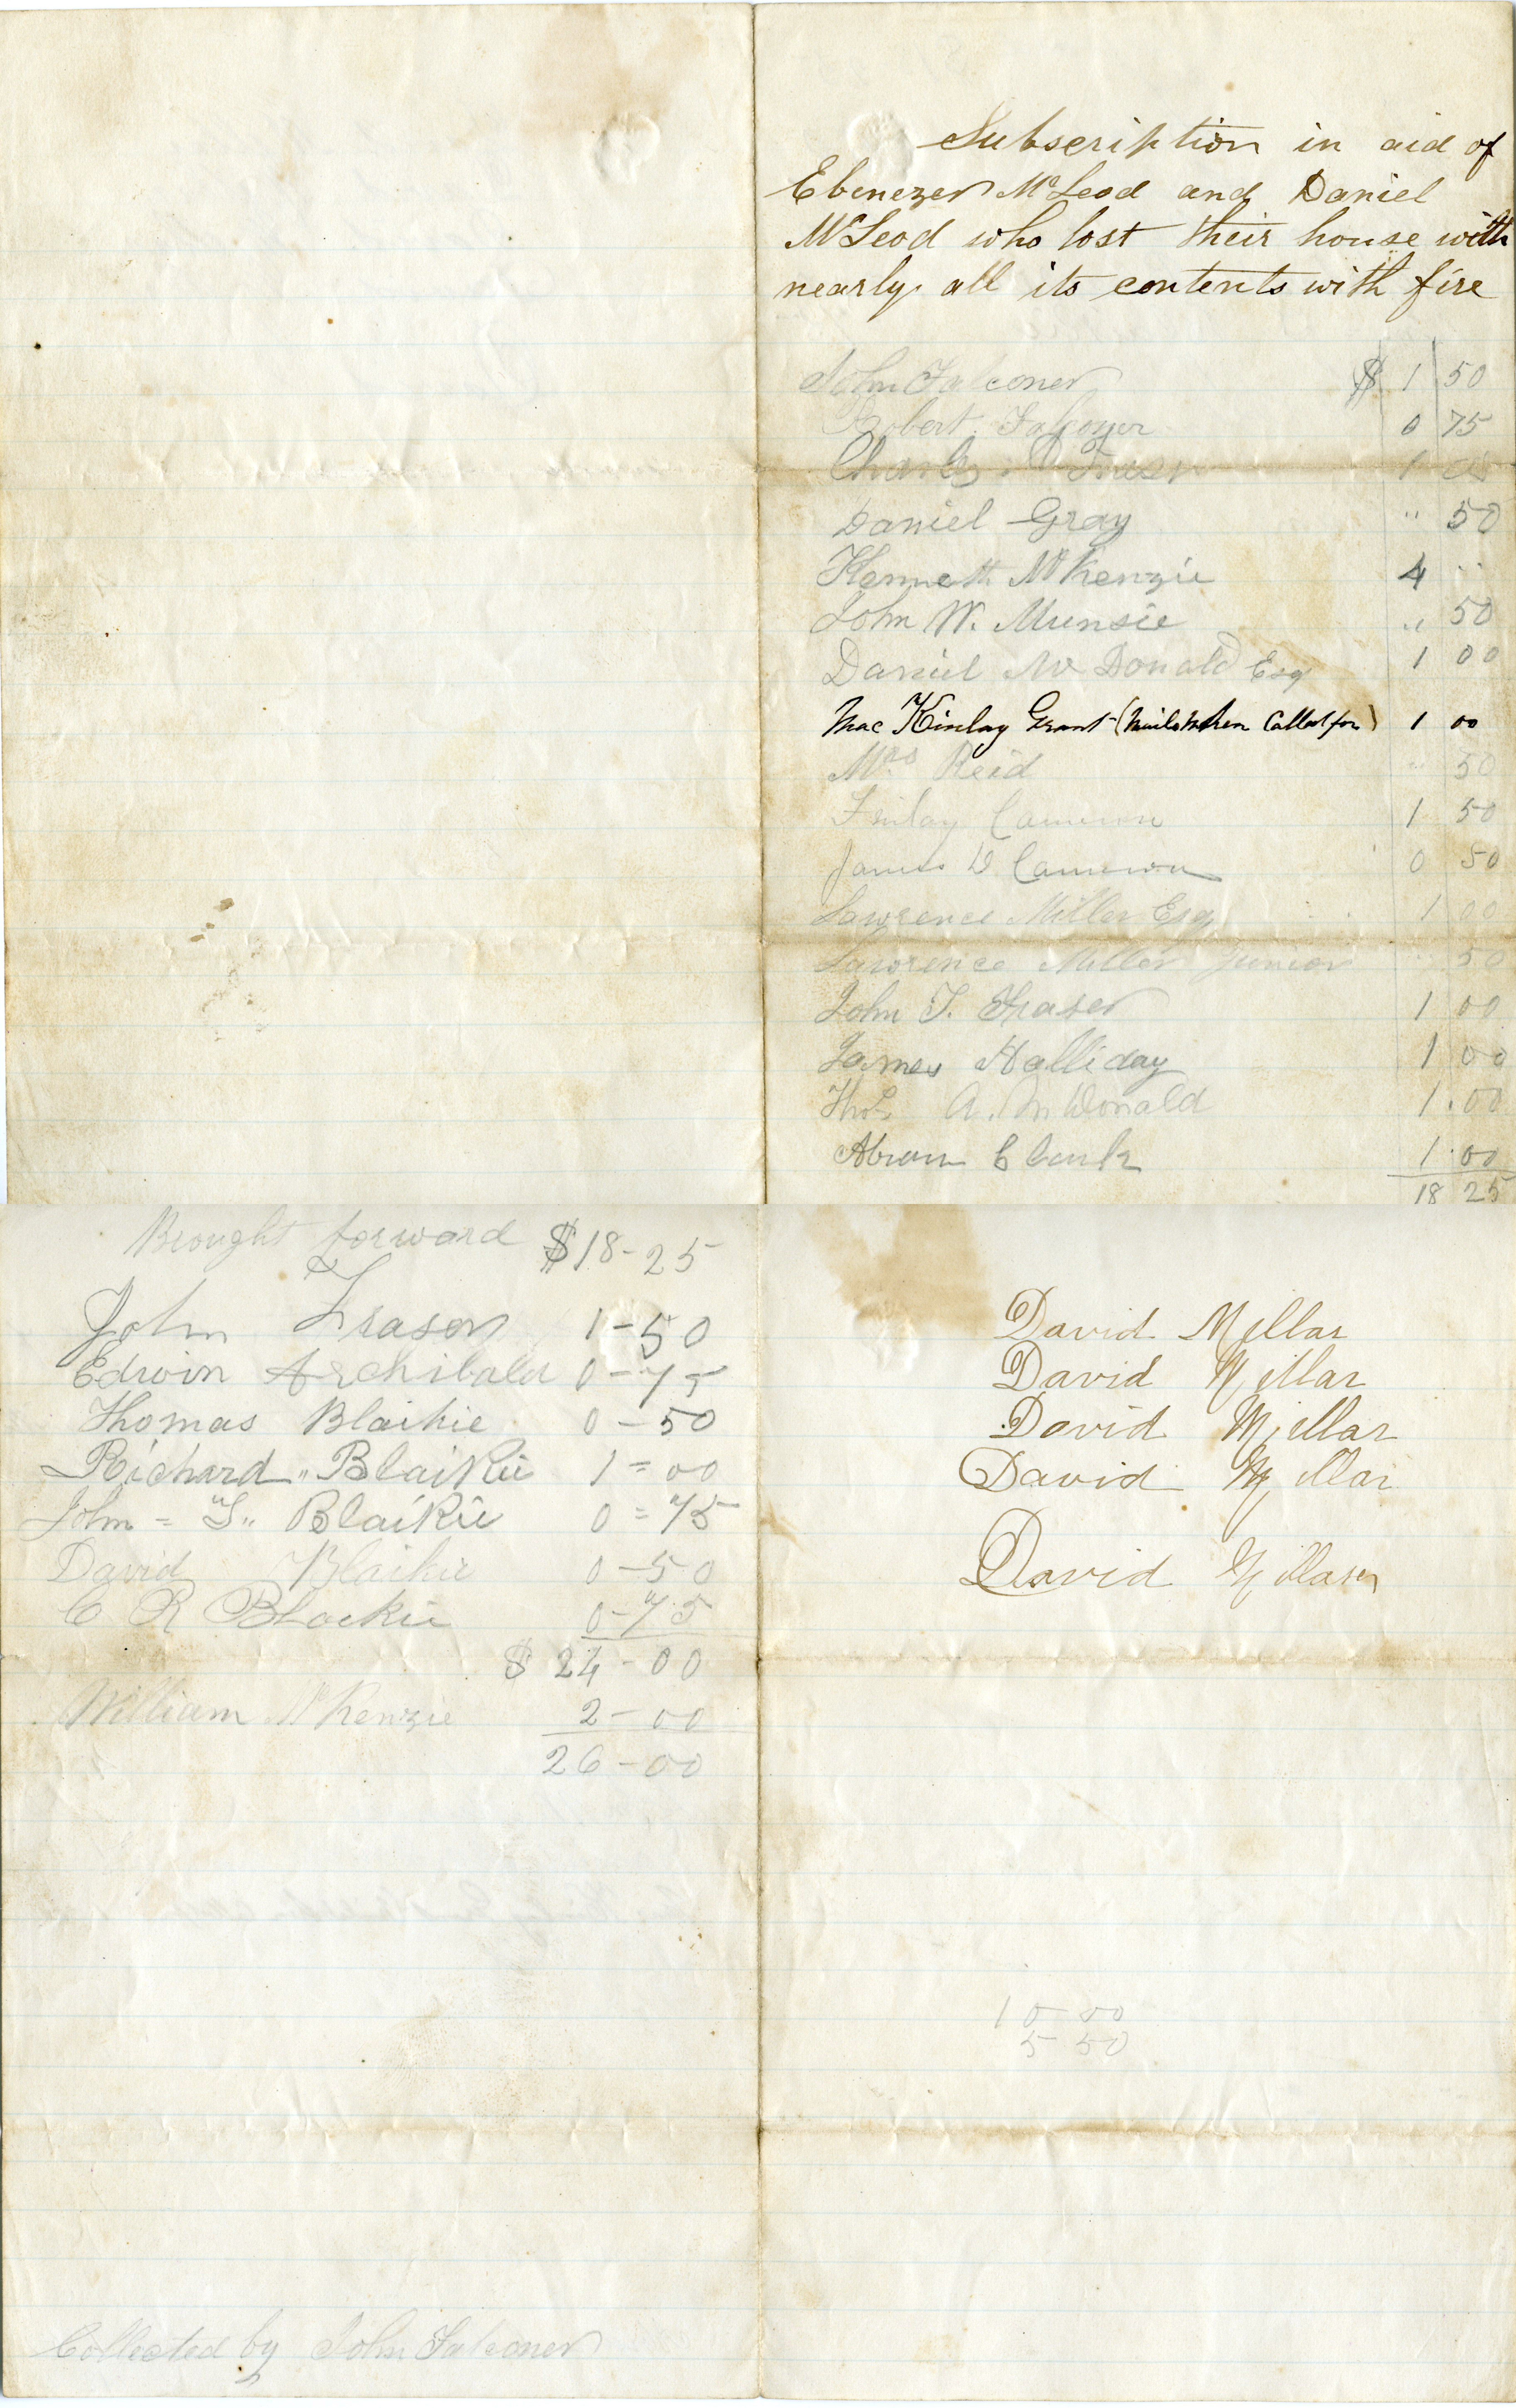 Subscription in aid of
Ebenezer McLeod and Daniel
McLeod who lost their house with
nearly all its contents with fire
John Falconer $ 1 50
Robert Falconer 0 75
Charles Fraser 1 00
Daniel Gray " 50
Kenneth McKenzie 4 ..
John W. Munsie " 50
Daniel McDonald Esq 1 00
Mac Kinlay Grant (when Called for) 1 00
Mrs Reid " 50
Finlay Cameron 1 50
James D Cameron 0 50
Lawrence Miller Esq 1 00
Lawrence Miller Junior " 50
John T. Fraser 1 00
James Halliday 1 00
Thos A. McDonald 1.00
Abram Clark 1.00
18 25
Brought forward $18-25
John Fraser 1-50
Edwin Archibald 0-75
Thomas Blaikie 0-50
Richard " Blaikie 1=00
John = S" Blaikie 0=75
David Blaikie 0-50
C R Blackie 0-75
$ 24-00
William McKenzie 2-00
26-00
Collected by John Falconer
David Millar
David Millar
David Millar
David Millar
David Millar
10 00
5 50